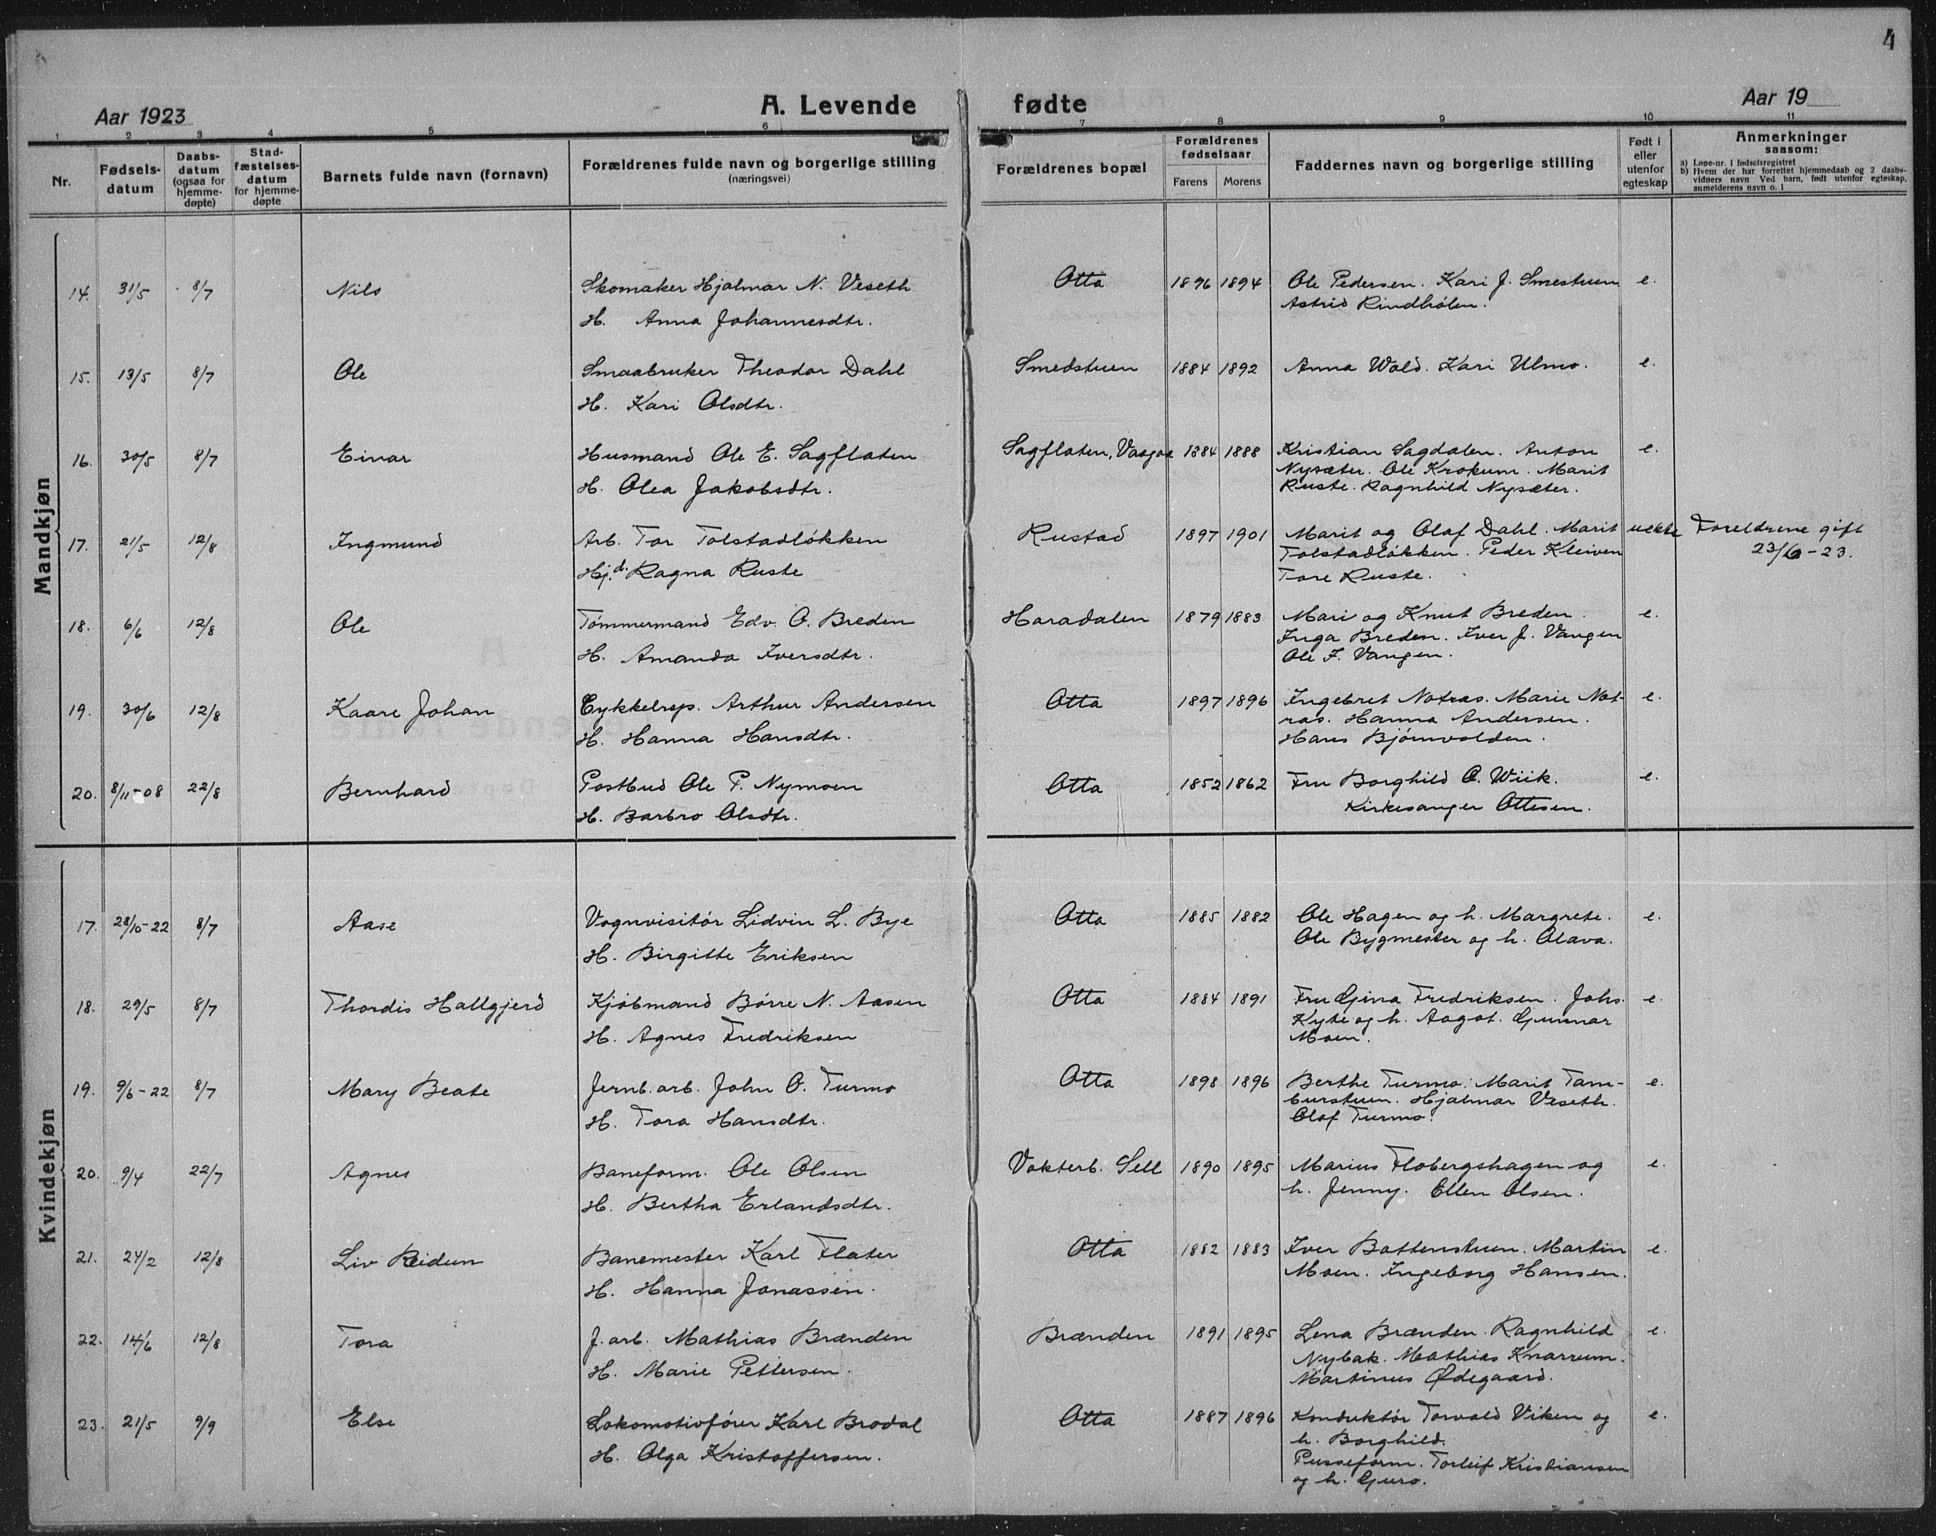 4
Aar 1923
A. Levende fødte
Aar 19
1 2 3 4 5 6 7 8 9 10 11
Nr.
Fødsels-
datum
Daabs-
datum
(ogsaa for
hjemme-
døpte)
Stad-
fæstelses-
datum
for hjemme-
døpte
Barnets fulde navn (fornavn)
Forældrenes fulde navn og borgerlige stilling
(næringsvei)
Forældrenes bopæl
Forældrenes
fødselsaar
Farens Morens
Faddernes navn og borgerlige stilling
Født i
eller
utenfor
egteskap
Anmerkninger
saasom:
a) Løpe-nr. i fødselsregistret
b) Hvem der har forrettet hjemmedaab og 2 daabs-
vidners navn Ved barn, født utenfor egteskap,
anmelderens navn o. l
Mandkjøn
14. 31/5 8/7 Nils Skomaker Hjalmar N. Veseth Otta 1896 1894 Ole Pedersen. Kari J. Smestuen e.
H. Anna Johannesdtr. Astrid Rindhølen.
15. 13/5 8/7 Ole Smaabruker Theodor Dahl Smedstuen 1884 1892 Anna Wold. Kari Ulmo. e.
H. Kari Olsdtr.
16. 30/5 8/7 Einar Husmand Ole E. Sagflaten Sagflaten, Vaage 1884 1888 Kristian Sagdalen. Anton e.
H. Olea Jakobsdtr. Nysæter. Ole Krokum. Marit
Ruste. Ragnhild Nysæter.
17. 21/5 12/8 Ingmund Arb. Tor Tolstadløkken Rustad 1897 1901 Marit og Olaf Dahl. Marit uekte Foreldrene gift
Hj.d. Ragna Ruste Tolstadløkken. Peder Kleiven 23/6-23.
Tore Ruste.
18. 6/6 12/8 Ole Tømmermand Edv. O. Breden Haradalen 1879 1883 Mari og Knut Breden. e.
H. Amanda Iversdtr. Inga Breden. Iver J. Vangen
Ole I. Vangen.
19. 30/6 12/8 Kaare Johan Cykkelrep. Arthur Andersen Otta 1897 1896 Ingebret Notras. Marie Not- e.
H. Hanna Hansdtr. ras. Hanna Andersen.
Hans Bjørnvolden.
20. 8/11-08 22/8 Bernhard Postbud Ole P. Nymoen Otta 1852 1862 Fru Borghild O. Wiik. e.
H. Barbro Olsdtr. Kirkesanger Ottesen.
Kvindekjøn
17. 28/10-22 8/7 Aase Vognvisitør Lidvin L. Bye Otta 1885 1882 Ole Hagen og h. Margrete. e.
H. Birgitte Eriksen Ole Bygmester og h. Olava.
18. 29/5 8/7 Thordis Hallgjerd Kjøbmand Børre N. Aasen Otta 1884 1891 Fru Gina Fredriksen. Johs. e.
H. Agnes Fredriksen Kyte og h. Aagot. Gunnar
Moen.
19. 9/6-22 8/7 Mary Beate Jernb.arb. John O. Turmo Otta 1898 1896 Berthe Turmo. Marit Tam- e.
H. Tora Hansdtr. burstuen. Hjalmar Veseth.
Olaf Turmo.
20. 9/4 22/7 Agnes Baneform. Ole Olsen Vokterb. Sell 1890 1895 Marius Flobergshagen og e.
H. Bertha Erlandsdtr. h. Jenny. Ellen Olsen.
21. 24/2 12/8 Liv Reidun Banemester Karl Flater Otta 1882 1883 Iver Battenstuen. Martin e.
H. Hanna Jonassen. Moen. Ingeborg Hansen.
22. 14/6 12/8 Tora J. arb. Mathias Brænden Brænden 1891 1895 Lena Brænden. Ragnhild e.
H. Marie Pettersen. Nybak. Mathias Knarrum.
Martinus Ødegaard.
23. 21/5 9/9 Else Lokomotivfører Karl Brodal Otta 1887 1896 Konduktør Torvald Viken og e.
H. Olga Kristoffersen. h. Borghild.
Pusseform. Torleif Kristiansen
og h. Guro.